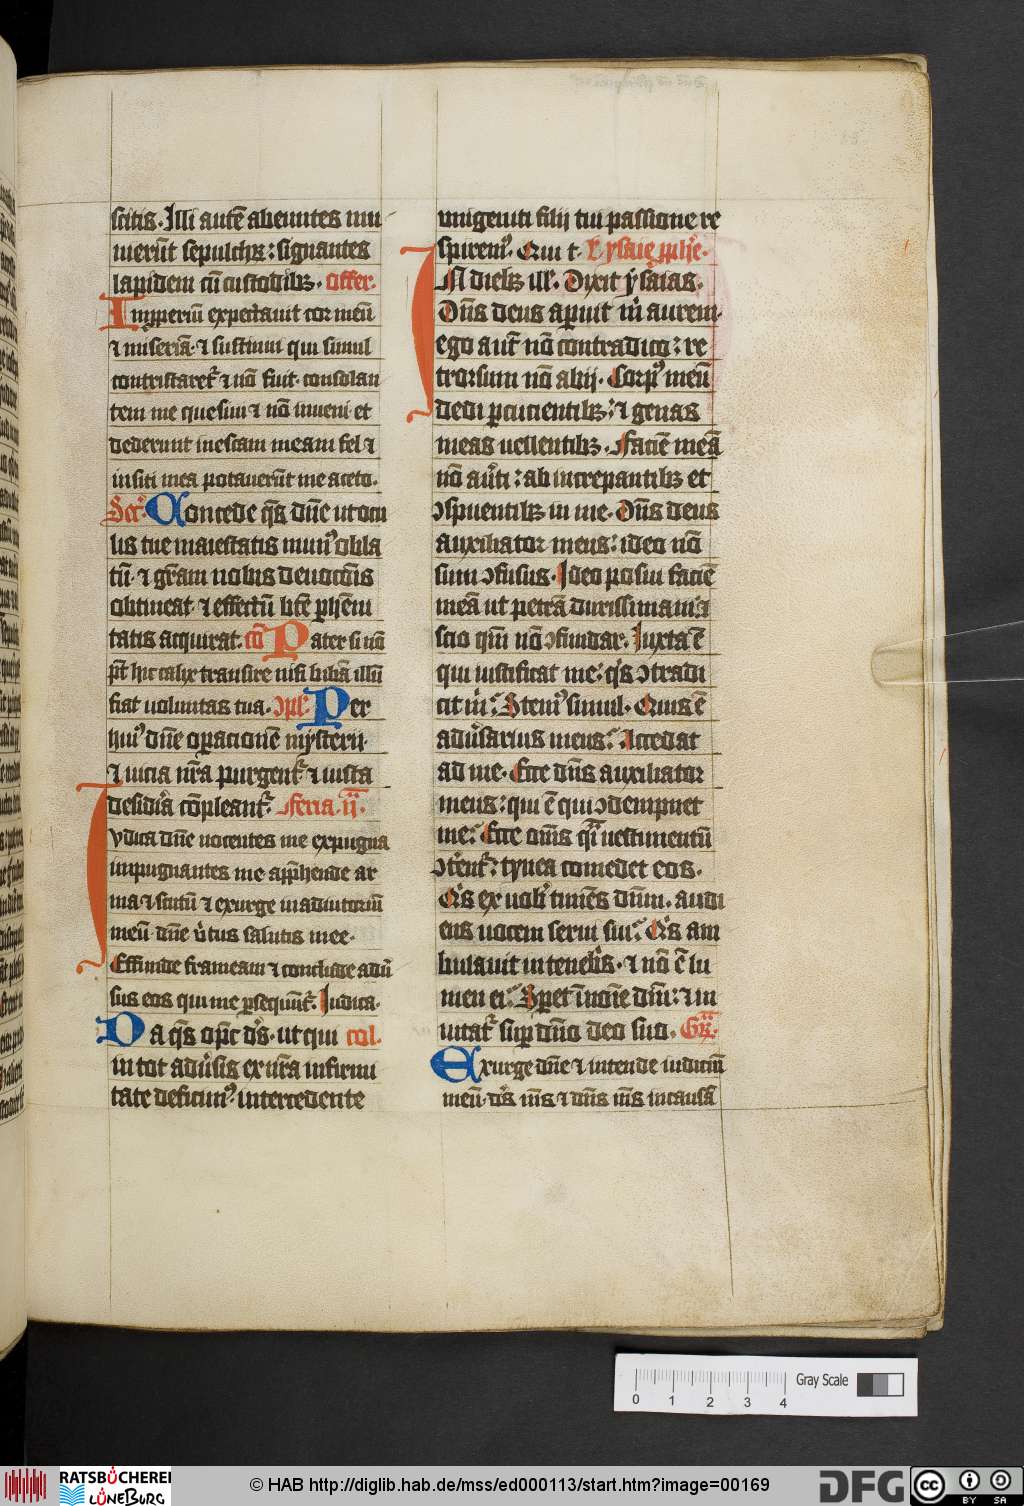 scitis. Illi autē abeuntes mu
nierūt sepulchꝝ: signantes
lapidem cū custodibꝫ. Offer.
Imꝓperiū expectauit cor meū
⁊ miseriā. ⁊ sustinui qui simul
contristaret᷑ ⁊ nō fuit. consolan
tem me quesiui ⁊ nō inueni et
dederunt in escam meam fel ⁊
in siti mea potauerūt me aceto.
Secr̄. Concede q̄s dn̄e ut ocu
lis tue maiestatis munꝰ obla
tū. ⁊ gr̄am nobis deuoc̄ōis
obtineat. ⁊ effectū btē ꝑhēni
tatis acquirat. cō Pater si nō
pt̄ hic calix transire nisi bibā illū
fiat uoluntas tua. ↄpl̄. Per
huiꝰ dn̄e oꝑacionē mysterii.
⁊ uicia nr̄a purgent᷑ ⁊ iusta
desidīa cōpleant᷑. Feria .ij.
Iudica dn̄e nocentes me expugna
impugnantes me app̄hende ar
ma ⁊ scutū ⁊ exurge in adiutoriū
meū dn̄e u̓tus salutis mee.
Effunde frameam ⁊ conclude adu̓
sus eos qui me ꝑsequūt᷑. Iudica.
Da q̄s op̄c d̄s. ut qui col.
in tot adu̓sis ex nr̄a infirmi
tate deficimꝰ. intercedente
unigeniti filij tui passione re
spiremꝰ. Qui t. L ysaie ꝓphe.
IN diebꝫ ill̄. Dixit ysaias.
Dn̄s deus aperuit m̓ aurem.
ego aut̄ nō contradico: re
trorsum nō abij. Corpꝰ meū
dedi ꝑcucientibꝫ: ⁊ genas
meas uellentibꝫ. Faciē meā
nō au̓ti: ab increpantibꝫ et
ↄspuentibꝫ in me. Dn̄s deus
auxiliator meus: ideo nō
sum ↄfusus. Ideo posui faciē
meā ut petrā durissimam: ⁊
scio qm̄ nō ↄfundar. Iuxta ē
qui iustificat me: q̓s ↄtradi
cit m̓: Stemꝰ simul. Quis ē
adu̓sarius meus: Accedat
ad me. Ecce dn̄s auxiliator
meus: qui ē qui ↄdempnet
me: Ecce om̄s q̓si uestimentū
ↄt̓ent᷑: tynea comedet eos.
Q̓s ex uob̄ timēs dn̄m. audi
ens uocem serui sui: Q̓s am
bulauit in teneb̓s. ⁊ nō ē lu
men ei: Speret ī noīe dn̄i: ⁊ in
nitat᷑ suꝑ dn̄o deo suo. Gr̄.
Exurge dn̄e ⁊ intende iudiciū
meū. d̄s m̄s ⁊ dn̄s m̄s in causā
Gray Scale
0 1 2 3 4
RATSBÜCHEREI
LÜNEBURG
© HAB http://diglib.hab.de/mss/ed000113/start.htm?image=00169
DFG
cc BY SA